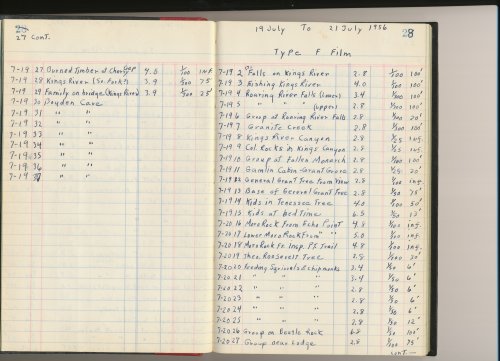 25
27 CONT.
7-19 27 Burned Timber at Cherry Gap 4.0 1/100 INF.
7-19 28 Kings River (So. Fork) 3.9 1/50 75'
7-19 29 Family on bridge (Kings River) 3.9 1/50 25'
7-19 30 Boyden Cave
7-19 31 " "
7-19 32 " "
7-19 33 " "
7-19 34 " "
7-19 35 " "
7-19 36 " "
7-19 37 " "
19 July To 21 July 1956 28
Type F Film
7-19 2 Falls on Kings River 2.8 1/200 100'
7-19 3 Fishing Kings River 4.0 1/100 100'
7-19 4 Roaring River Falls (lower) 3.4 1/100 100'
7-19 5 " " " (upper) 2.8 1/100 100'
7-19 6 Group at Roaring River Falls 2.8 1/100 20'
7-19 7 Granite Creek 2.8 1/100 100'
7-19 8 Kings River Canyon 2.8 inf.
7-19 9 Col. Rocks in Kings Canyon 2.8 inf.
7-19 10 Group at Fallen Monarch 2.8 1/100 100'
7-19 11 Gamlin Cabin-Grant Grove 2.8 20'
7-19 12 General Grant Tree From View 2.8 1/100 inf.
7-19 13 Base of General Grant Tree 2.8 1/50 75'
7-19 14 Kids in Tenessee Tree 4.0 50'
7-19 15 Kids at Bed Time 6.5 1/50 13'
7-20 16 Moro Rock From Echo Point 4.8 1/100 inf.
7-20 17 Lower Moro Rock From " " 5.0 inf.
7-20 18 Moro Rock Fr. Insp. Pt. Trail 4.8 1/100 inf.
7-20 19 Theo. Roosevelt Tree 2.8 30'
7-20 20 Feeding Squirrels & Chipmonks 3.4 1/50 6'
7-20 21 " " " 3.4 1/50 6'
7-20 22 " " " 2.8 1/50 6'
7-20 23 " " " 2.8 1/50 6'
7-20 24 " " " 2.8 1/50 6'
7-20 25 " " " 2.8 1/50 12'
7-20 26 Group on Beetle Rock 6.8 1/50 100'
7-20 27 Group near Lodge 2.8 1/100 75'
cont.—